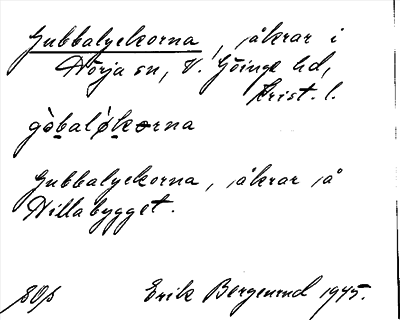 Gubbalyckorna, åkrar i
Nörja sn, V. Göinge hd,
Krist. l.
gòbalýkorna
Gubbalyckorna, åkrar på
Nillabygget.
Erik Bergenrud 1945.